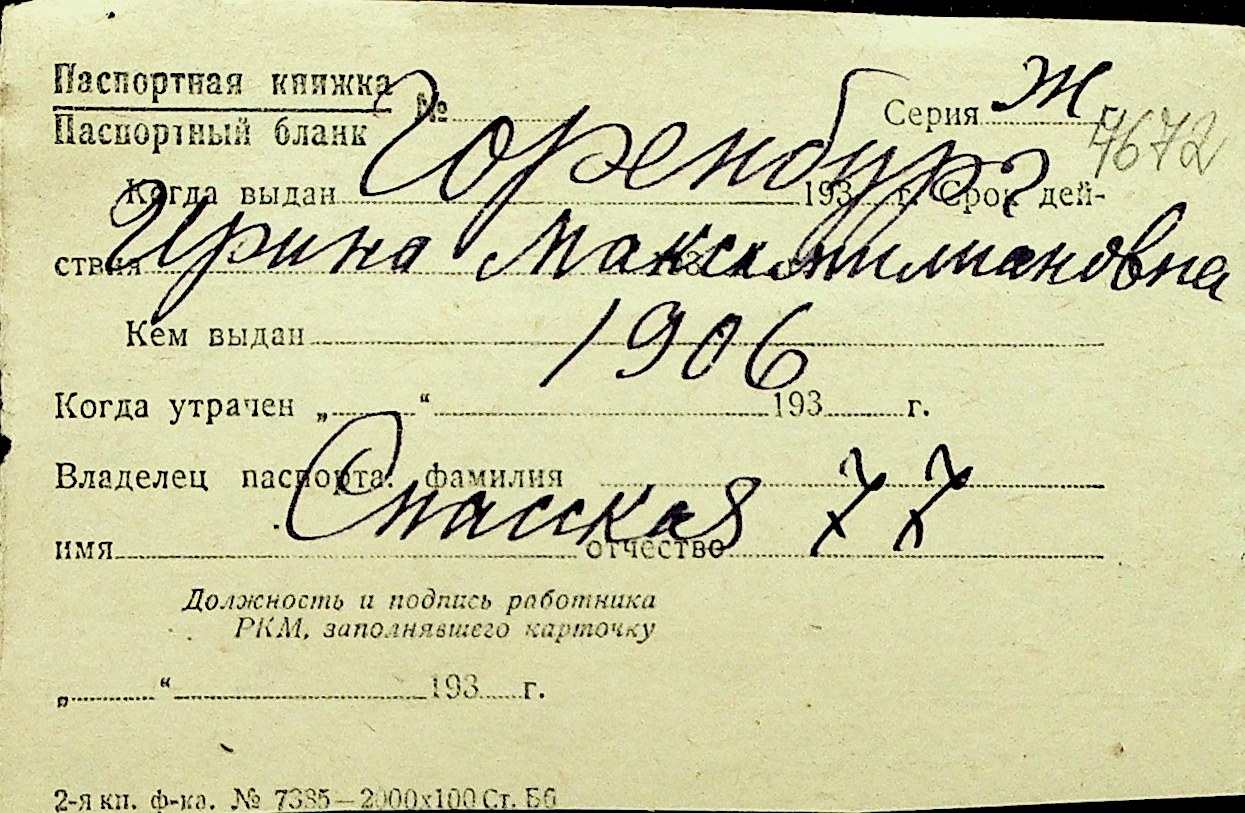 Паспортная книжка
Паспортный бланк
№ Серия Ж г.
4672
Горенбург
Когда выдан 193 г. Срок дей-
ствия
Ирина Максимилиановна
Кем выдан
1906
Когда утрачен „ “ 193 г.
Владелец паспорта: фамилия
Спасская 77
имя отчество
Должность и подпись работника
РКМ, заполнявшего карточку
„ “ 193 г.
2-я кп. ф-ка. № 7385—2000х100 Ст. Бб